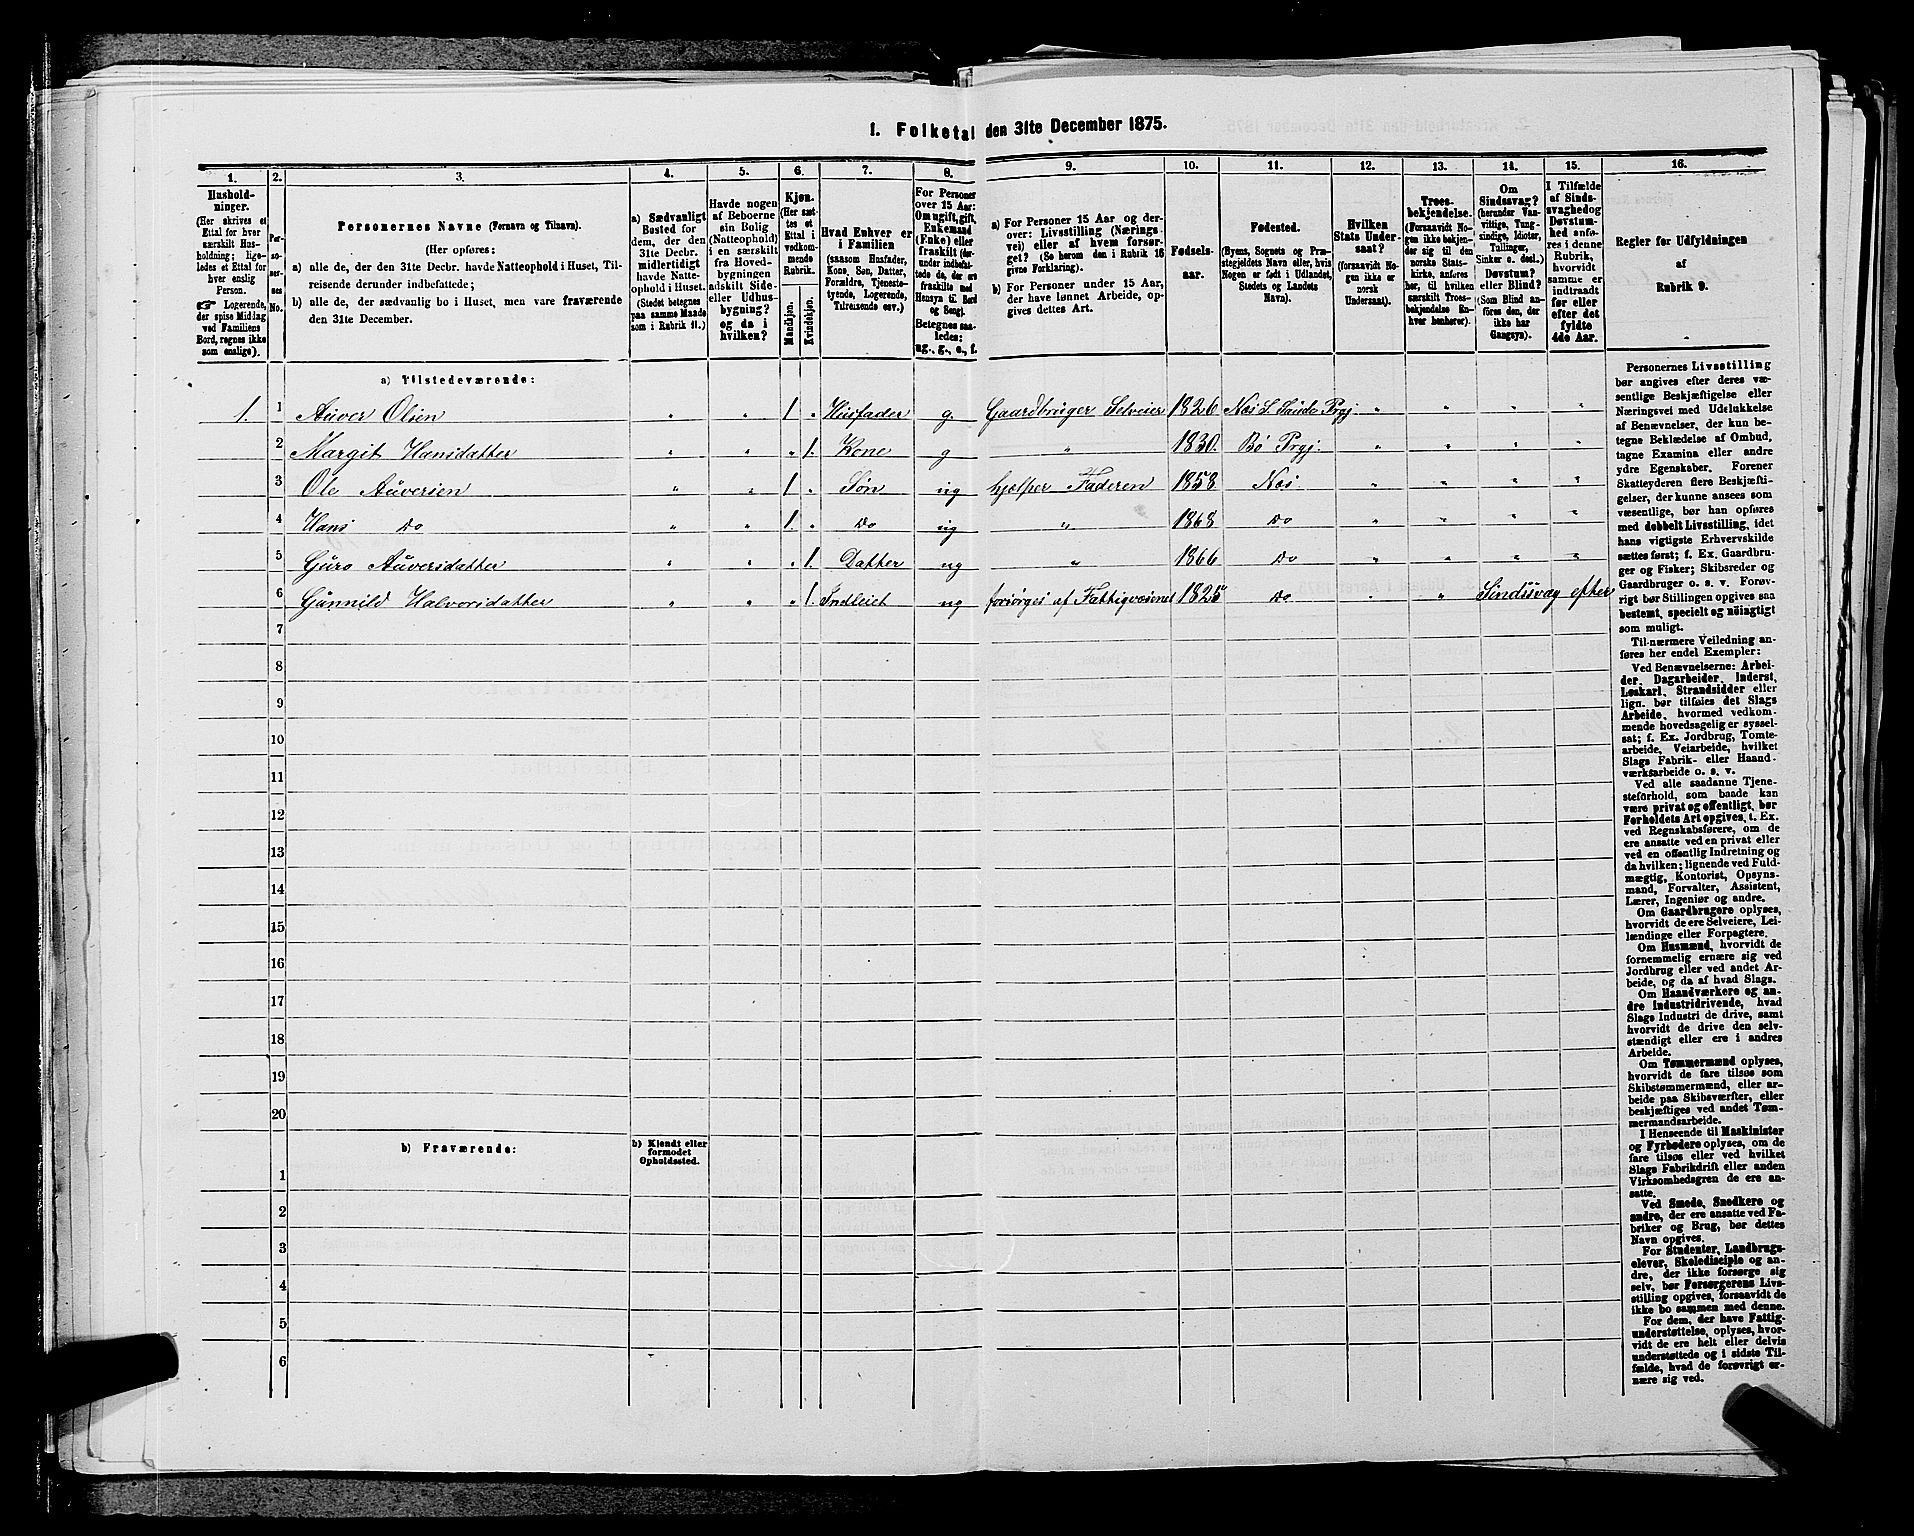 1. Folketal den 31te December 1875.
1. 2. 3. 4. 5. 6. 7. 8. 9. 10. 11. 12. 13. 14. 15. 16.
Hushold-
ninger.
(Her skrives et
Ettal for hver
særskilt Hus-
holdning; lige-
ledes et Ettal for
hver enslig
Person.
☞ Logerende,
der spise Middag
ved Familiens
Bord, regnes ikke
som enslige).
Per-
so-
ner-
nes
No.
Personernes Navne (Fornavn og Tilnavn).
(Her opføres:
a) alle de, der den 31te Decbr. havde Natteophold i Huset, Til-
reisende derunder indbefattede;
b) alle de, der sædvanlig bo i Huset, men vare fraværende
den 31te December.
a) Sædvanligt
Bosted for
dem, der den
31te Decbr.
midlertidigt
havde Natte-
ophold i Huset.
(Stedet betegnes
paa samme Maade
som i Rubrik 11.)
Havde nogen
af Beboerne
sin Bolig
(Natteophold)
i en særskilt
fra Hoved-
bygningen
adskilt Side-
eller Udhus-
bygning?
og da i
hvilken?
Kjøn.
(Her sæt-
tes et
Ettal i
vedkom-
mende
Rubrik.
Mandkjøn.
Kvindekjøn.
Hvad Enhver er
i Familien
(saasom Husfader,
Kone, Søn, Datter,
Forældre, Tjeneste-
tyende, Logerende,
Tilreisende osv.)
For Personer
over 15 Aar:
Om ugift, gift,
Enkemand
(Enke) eller
fraskilt (her-
under indbefat-
tede de, der ere
fraskilte med
Hensyn til Bord
og Seng).
Betegnes saa-
ledes:
ug., g., e., f.
a) For Personer 15 Aar og der-
over: Livsstilling (Nærings-
vei) eller af hvem forsør-
get? (Se herom den i Rubrik 16
givne Forklaring).
b) For Personer under 15 Aar,
der have lønnet Arbeide, op-
gives dettes Art.
Fødsels-
aar.
Fødested.
(Byens, Sognets og Præ-
stegjeldets Navn eller, hvis
Nogen er født i Udlandet,
Stedets og Landets
Navn).
Hvilken
Stats Under-
saat?
(forsaavidt No-
gen ikke er
norsk
Undersaat).
Troes-
bekjendelse.
(Forsaavidt No-
gen ikke bekjen-
der sig til den
norske Stats-
kirke, anføres
her, til hvilken
særskilt Troes-
bekjendelse En-
hver henhører).
Om
Sindssvag?
(herunder Van-
vittige, Tung-
sindige, Idioter,
Tullinger,
Sinker o. desl.)
Døvstum?
eller Blind?
(Som Blind an-
føres den, der
ikke har
Gangsyn).
I Tilfælde
af Sinds-
svaghed og
Døvstum-
hed anfø-
res i denne
Rubrik,
hvorvidt
samme er
indtraadt
før eller
efter det
fyldte
4de Aar.
Regler for Udfyldningen
af
Rubrik 9.
a) Tilstedeværende:
1. 1 Auver Olsen " " 1 " Husfader g. Gaardbruger Selveier 1826 Næs S. Saude Prgj. " " " "
2 Margit Hansdatter " " " 1. Kone g " 1830. Bø Prgj. " " " "
3 Ole Auversen " " 1 " Søn ug hjælper Faderen 1858 Næs " " " "
4 Hans Do " " 1. " Do ug " 1868 Do " " " "
5 Guro Auversdatter " " " 1. Datter ug " 1866 Do " " " "
6 Gunnild Halvorsdatter " " " 1. Indleiet ug forsørges af Fattigvæsnet 1825 Do " " Sindssvag efter
7
8
9
10
11
12
13
14
15
16
17
18
19
20
b) Fraværende:
b) Kjendt eller
formodet
Opholdssted.
1
2
3
4
5
6
Personernes Livsstilling
bør angives efter deres væ-
sentlige Beskjæftigelse eller
Næringsvei med Udelukkelse
af Benævnelser, der kun be-
tegne Beklædelse af Ombud,
tagne Examina eller andre
ydre Egenskaber. Forener
Skatteyderen flere Beskjæfti-
gelser, der kunne ansees som
væsentlige, bør han opføres
med dobbelt Livsstilling, idet
hans vigtigste Erhvervskilde
sættes først; f. Ex. Gaardbru-
ger og Fisker; Skibsreder og
Gaardbruger o. s. v. Forøv-
rigt bør Stillingen opgives saa
bestemt, specielt og nøiagtigt
som muligt.
Til nærmere Veiledning an-
føres her endel Exempler:
Ved Benævnelserne: Arbei-
der, Dagarbeider, Inderst,
Løskarl, Strandsidder eller
lign. bør tilføies det Slags
Arbeide, hvormed vedkom-
mende hovedsagelig er syssel-
sat; f. Ex. Jordbrug, Tomte-
arbeide, Veiarbeide, hvilket
Slags Fabrik- eller Haand-
værksarbeide o. s. v.
Ved alle saadanne Tjene-
steforhold, som baade kan
være privat og offentligt, bør
Forholdets Art opgives, t. Ex.
ved Regnskabsførere, om de
ere ansatte ved en privat eller
ved en offentlig Indretning og
da hvilken; lignende ved Fuld-
mægtig, Kontorist, Opsyns-
mand, Forvalter, Assistent,
Lærer, Ingeniør og andre.
Om Gaardbrugere oplyses,
hvorvidt de ere Selveiere, Lei-
lændinge eller Forpagtere.
Om Husmænd, hvorvidt de
fornemmelig ernære sig ved
Jordbrug eller ved andet Ar-
beide, og da af hvad Slags.
Om Haandværkere og an-
dre Industridrivende, hvad
Slags Industri de drive, samt
hvorvidt de drive den selv-
stændigt eller ere i andres
Arbeide.
Om Tømmermænd oplyses,
hvorvidt de fare tilsøs som
Skibstømmermænd, eller ar-
beide paa Skibsværfter, eller
beskjæftiges ved andet Tøm-
mermandsarbeide.
I Henseende til Maskinister
og Fyrbødere oplyses, om de
fare tilsøs eller ved hvilket
Slags Fabrikdrift eller anden
Virksombedsgren de ere an-
satte.
Ved Smede, Snedkere og
andre, der ere ansatte ved Fa-
briker og Brug, bør dettes
Navn opgives.
For Studenter, Landbrugs-
elever, Skoledisciple og an-
dre, der ikke forsørge sig
selv, bør Forsørgerens Livs-
stilling opgives, forsaavidt de
ikke bo sammen med denne.
For dem, der have Fattig-
understøttelse, oplyses, hvor-
vidt de ere helt eller delvis
understøttede og i sidste Til-
fælde, hvad de forøvrigt er-
nære sig ved.